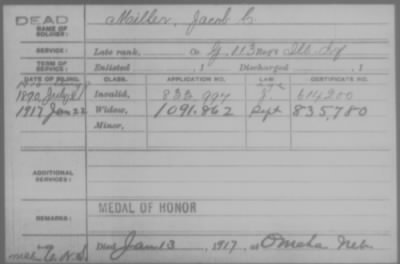 DEAD
NAME OF SOLDIER:
Miller, Jacob C.
SERVICE:
Late rank, Co. G, 113 Reg't Ill. Inf
TERM OF SERVICE:
Enlisted , 1 Discharged , 1
DATE OF FILING. CLASS. APPLICATION NO. LAW. CERTIFICATE NO.
1890 July 21 Invalid, 614200
1917 Jan 22 Widow, 1091.862 Sept 835,780
Minor,
ADDITIONAL SERVICES:
REMARKS:
MEDAL OF HONOR
Died Jan 13, 1917, at Omaha Neb.